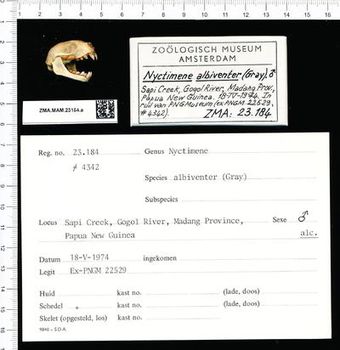 ZOÖLOGISCH MUSEUM
AMSTERDAM
Nyctimene albiventer (Gray) ♂
Sapi Creek, Gogol River, Madang Prov.,
Papua New Guinea. 18-IV-1974. In
ruil van PNG Museum (ex PNGM 22529,
# 4342).
ZMA: 23.184
ZMA.MAM.23184.a
Reg. no. 23.184 Genus Nyctimene
# 4342
Species albiventer (Gray)
Subspecies
Locus Sapi Creek, Gogol River, Madang Province, Sexe ♂
Papua New Guinea alc.
Datum 18-V-1974 ingekomen
Legit Ex-PNGM 22529
Huid kast no. (lade, doos)
Schedel kast no. (lade, doos)
Skelet (opgesteld, los) kast no. (lade, doos)